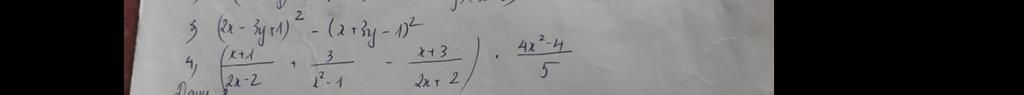 3, (2x - 3y + 1)² - (x + 3y - 1)²
4, ((x+1)/(2x-2) + 3/(x²-1) - (x+3)/(2x+2)) · (4x²-4)/5